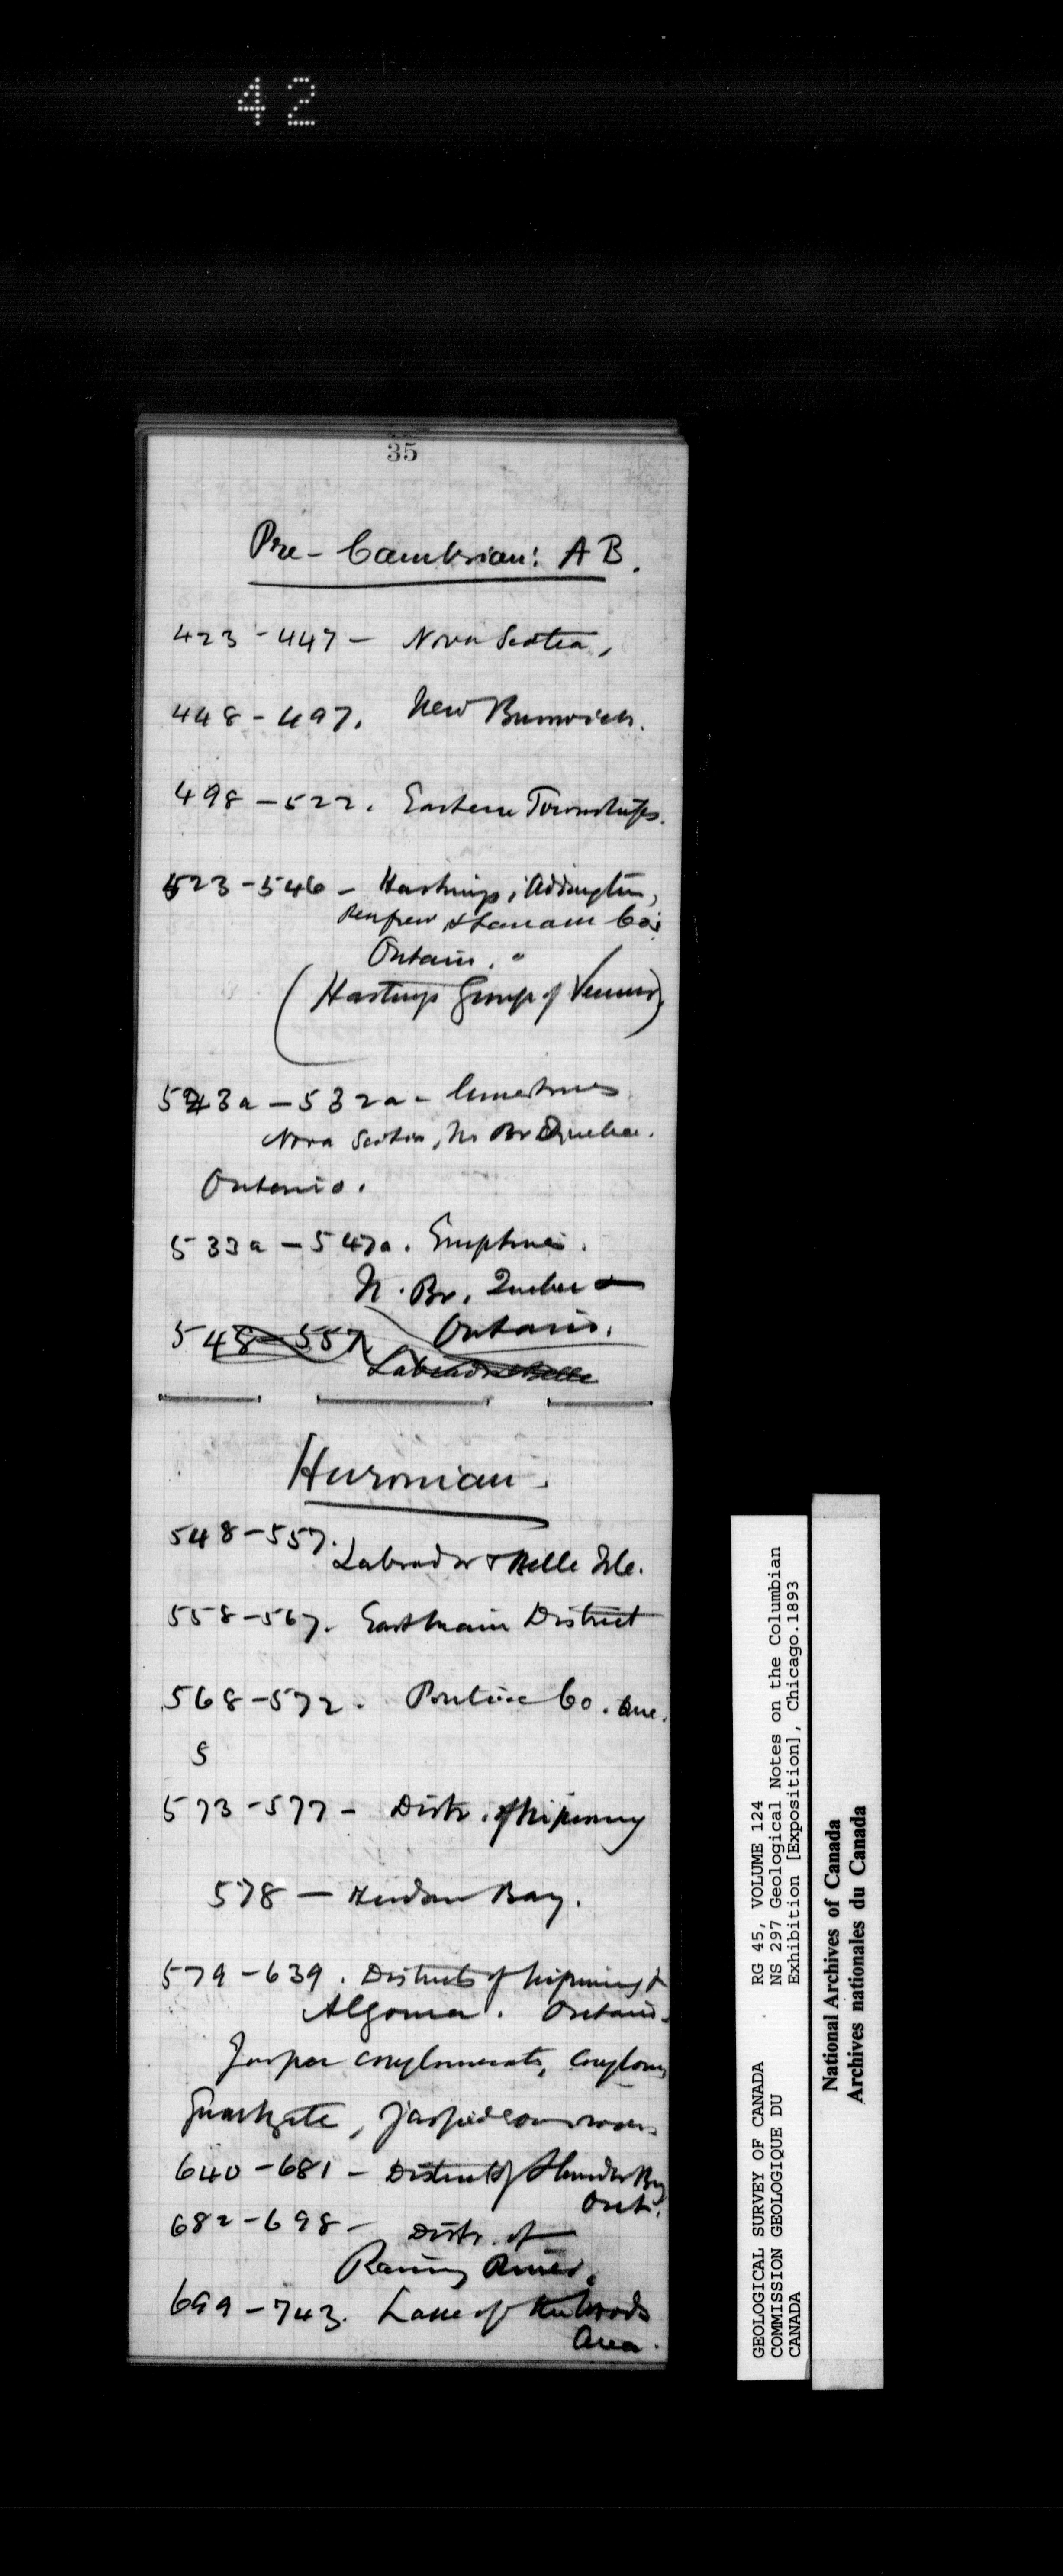 42
35
Pre-Cambrian: AB.
423-447- Nova Scotia,
448-497. New Brunswick.
498-522. Eastern Townships.
523-546- Hastings, Addington,
Renfrew & Lanark Cos
Ontario.
(Hastings Group of Vennor)
523a-532a- limestones
Nova Scotia, N. Br Quebec.
Ontario.
533a-547a. Eruptives.
N. Br. Quebec &
548-557 Ontario.
Labrador & Belle
Huronian.
548-557.
Labrador & Belle Isle.
558-567. Eastmain District
568-572. Pontiac Co. Que.
5
573-577- Distr. of Nipissing
578- Hudson Bay.
579-639. Districts of Nipissing &
Algoma. Ontario.
Jasper conglomerate, conglom
Quartzite,
640-681- District of Thunder Bay
Ont.
682-698- Distr. of
Rainy River.
699-743. Lake of the Woods
Area.
GEOLOGICAL SURVEY OF CANADA
COMMISSION GEOLOGIQUE DU
CANADA
RG 45, VOLUME 124
NS 297 Geological Notes on the Columbian
Exhibition [Exposition], Chicago.1893
National Archives of Canada
Archives nationales du Canada